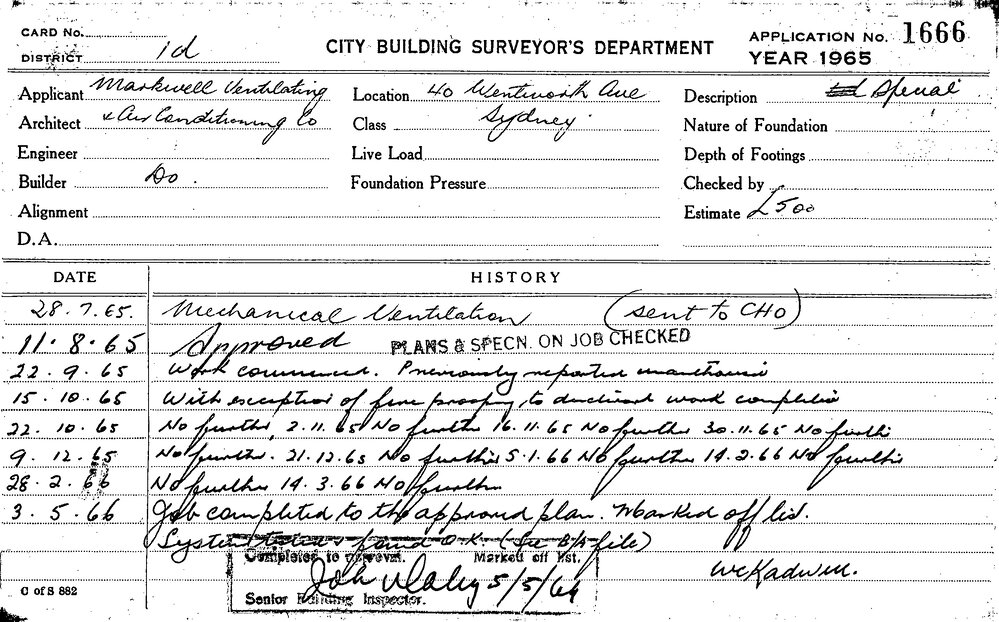 CARD No.
DISTRICT id
CITY BUILDING SURVEYOR'S DEPARTMENT
APPLICATION No. 1666
YEAR 1965
Applicant Markwell Ventilating
Location 40 Wentworth Ave
Description Special
Architect & Air Conditioning Co
Class Sydney
Nature of Foundation
Engineer
Live Load
Depth of Footings
Builder Do.
Foundation Pressure
Checked by
Alignment
Estimate £500
D.A.
DATE HISTORY
28.7.65. Mechanical Ventilation (sent to CHO)
11.8.65 Approved PLANS & SPECN. ON JOB CHECKED
22.9.65 Work commenced. Previously reported
15.10.65 With exception of fire proofing to work
22.10.65 No further, 2.11.65 No further 16.11.65 No further 30.11.65 No further
9.12.65 No further. 21.12.65 No further 5.1.66 No further 14.2.66 No further
28.2.66 No further 14.3.66 No further
3.5.66 Job completed to the approved plan. Marked off list.
System found O.K. (See file)
Completed to approval. Marked off list.
5/5/66
Senior Building Inspector.
C of S 882